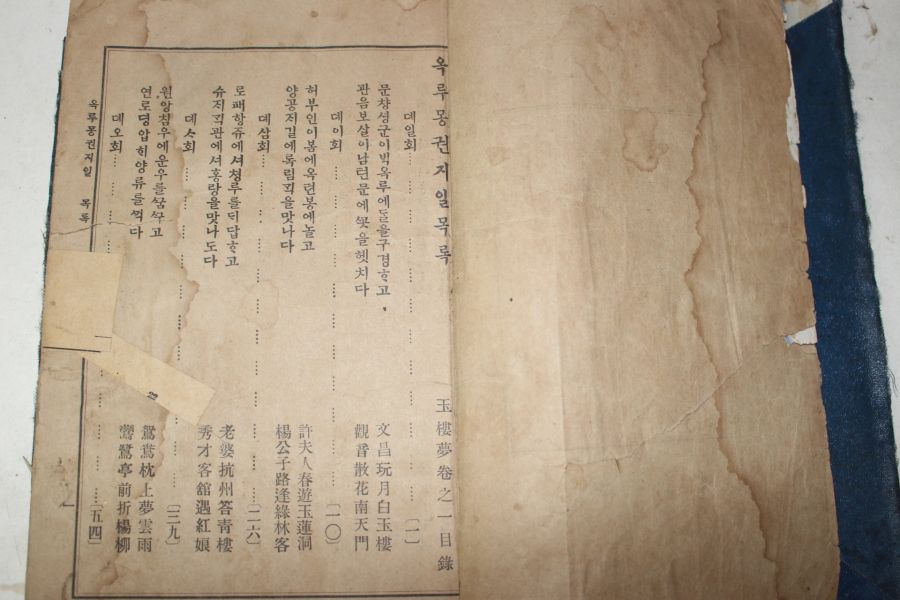 옥루몽권지일목록 玉樓夢卷之一目錄
뎨일회 〔一〕
문챵셩군이빅옥루에둘을구경ᄒᆞ고 文昌玩月白玉樓
관음보살이남텬문에ᄭᅩᆺ을헷치다 觀音散花南天門
뎨이회 〔一〇〕
허부인이봄에옥련봉에놀고 許夫人春遊玉蓮洞
양공ᄌᆞ길에록림긱을맛나다 楊公子路逢綠林客
뎨삼회 〔二六〕
로패항쥬에셔쳥루를ᄃᆡ답ᄒᆞ고 老婆抗州答青樓
슈ᄌᆡ긱관에셔홍랑을맛나도다 秀才客舘遇紅娘
뎨ᄉᆞ회 〔三九〕
원앙침우에운우를ᄭᅮᆷᄭᅮ고 鴛鴦枕上夢雲雨
연로뎡압ᄒᆡ양류를ᄭᅥᆨ다 鷰鷺亭前折楊柳
뎨오회 〔五四〕
옥루몽권지일 목록 一